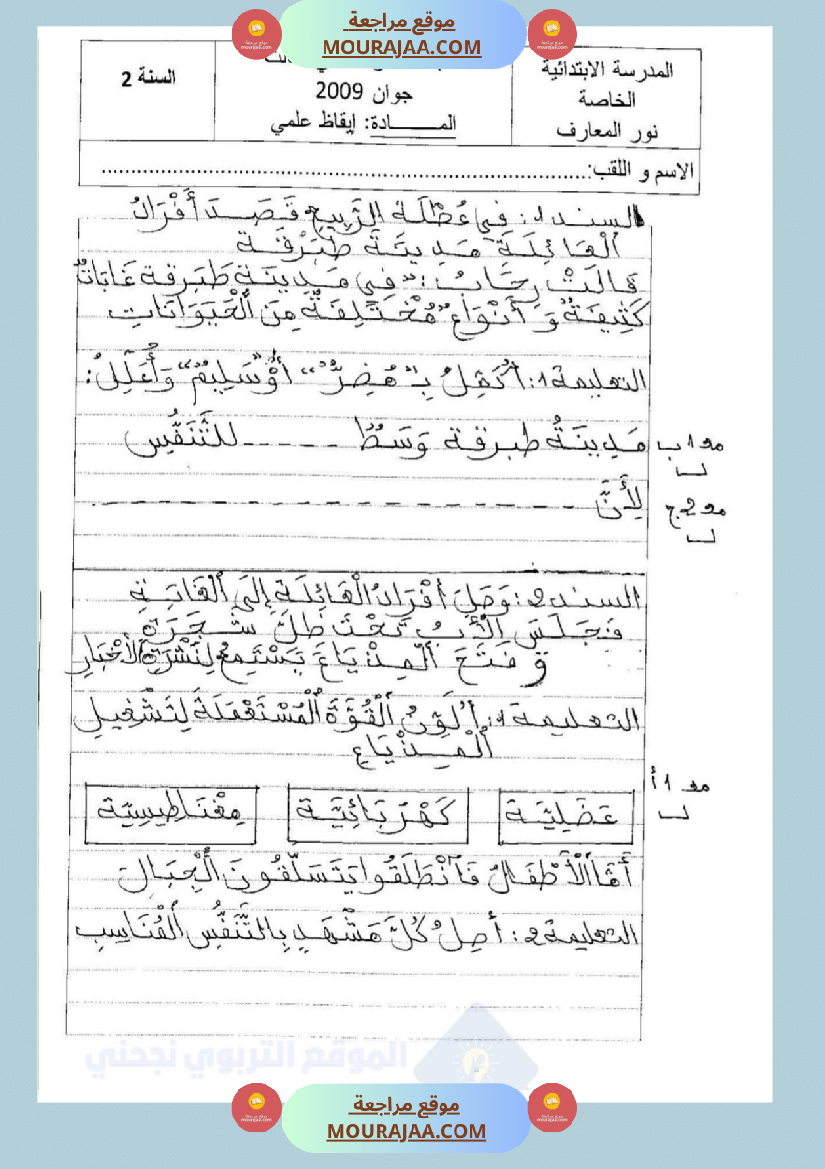 موقع مراجعة
MOURAJAA.COM
المدرسة الابتدائية
الخاصة
نور المعارف
جوان 2009
المــــــادة: إيقاظ علمي
السنة 2
الاسم و اللقب:......................................................................................
السند 1: في عُطْلَة الرَّبِيعِ قَصَدَ أَفْرَادُ
الْعَائِلَةِ مَدِينَةَ طَبَرْقَة
قَالَتْ رِحَابُ: "في مَدِينَةِ طَبَرقة غَابَاتٌ
كَثِيفَةٌ وَ أَنْوَاعٌ مُخْتَلِفَةٌ مِنَ الْحَيَوَانَاتِ
التعليمة 1: أُكْمِلُ بِـ "مُضِرٌّ" أَوْ "سَلِيمٌ" وَأُعَلِّلُ:
مَدِينَةُ طبرقة وَسَطٌ ------ للتَّنَفُّسِ
مع 1 ب
لِأَنَّ -------------------------
مع 2 ج
السند 2: وَصَلَ أَفْرَادُ الْعَائِلَةِ إِلَى الْغَابَةِ
فَجَلَسَ الْأَبُ تَحْتَ ظِلِّ شَجَرَةٍ
وَ فَتَحَ الْمِذْيَاعَ يَسْتَمِعُ لِنَشْرَةِ الْأَخْبَارِ
التعليمة 1: أُلَوِّنُ الْقُوَّةَ الْمُسْتَعْمَلَةَ لِتَشْغِيلِ
الْمِذْيَاعِ
مع 1 أ
عَضَلِيَّة
كَهْرَبَائِيَّة
مِغْنَاطِيسِيّة
أَمَّا الْأَطْفَالُ فَانْطَلَقُوا يَتَسَلَّقُونَ الْجِبَالَ
التعليمة 2: أَصِلُ كُلَّ مَشْهَدٍ بِالتَّنَفُّسِ الْمُنَاسِبِ
الموقع التربوي نجحني
موقع مراجعة
MOURAJAA.COM